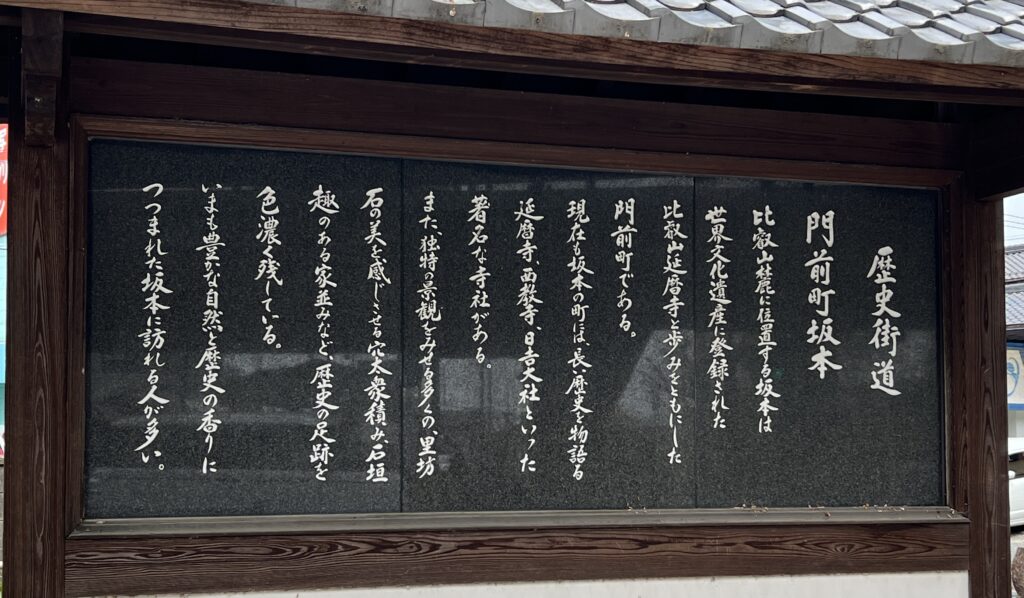 歴史街道
門前町坂本
比叡山麓に位置する坂本は
世界文化遺産に登録された
比叡山延暦寺と歩みをともにした
門前町である。
現在も坂本の町は、長い歴史を物語る
延暦寺、西教寺、日吉大社といった
著名な寺社がある。
また、独特の景観をみせる多くの、里坊
石の美を感じさせる穴太衆積み石垣
趣のある家並みなど、歴史の足跡を
色濃く残している。
いまも豊かな自然と歴史の香りに
つつまれた坂本に訪れる人が多い。